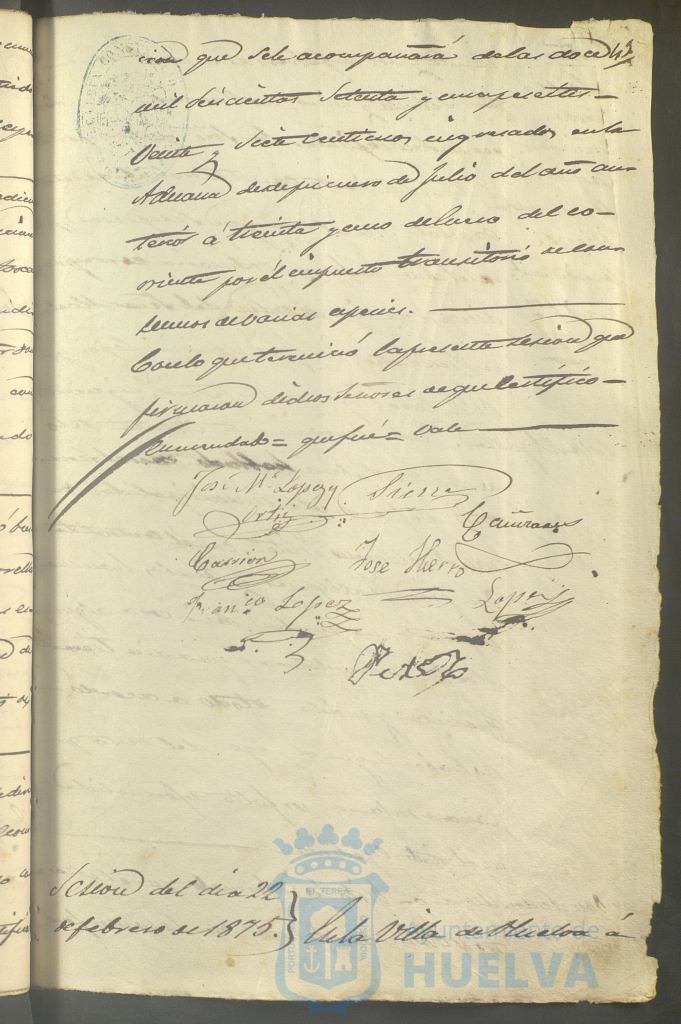 cion que sele acompañará delas doce 43
mil seiscientas setenta y una pesetas
veinte y siete centimos ingresados en la
Aduana desde primero de Julio del año an-
terior á treinta y uno de Enero del co-
rriente por él impuesto transitorio
de varias especies.
Con lo que terminó la presente sesion que
firmaron dichos Señores de que Certifico=
Enmendado= que fué= Vale
José Mª Lopez y Sierra
Ortiz
Carrion José Hierro
Franco Lopez Lopez
Sesion del dia 22
de febrero de 1875. } En la Villa de Huelva á
Ayuntamiento de
HUELVA